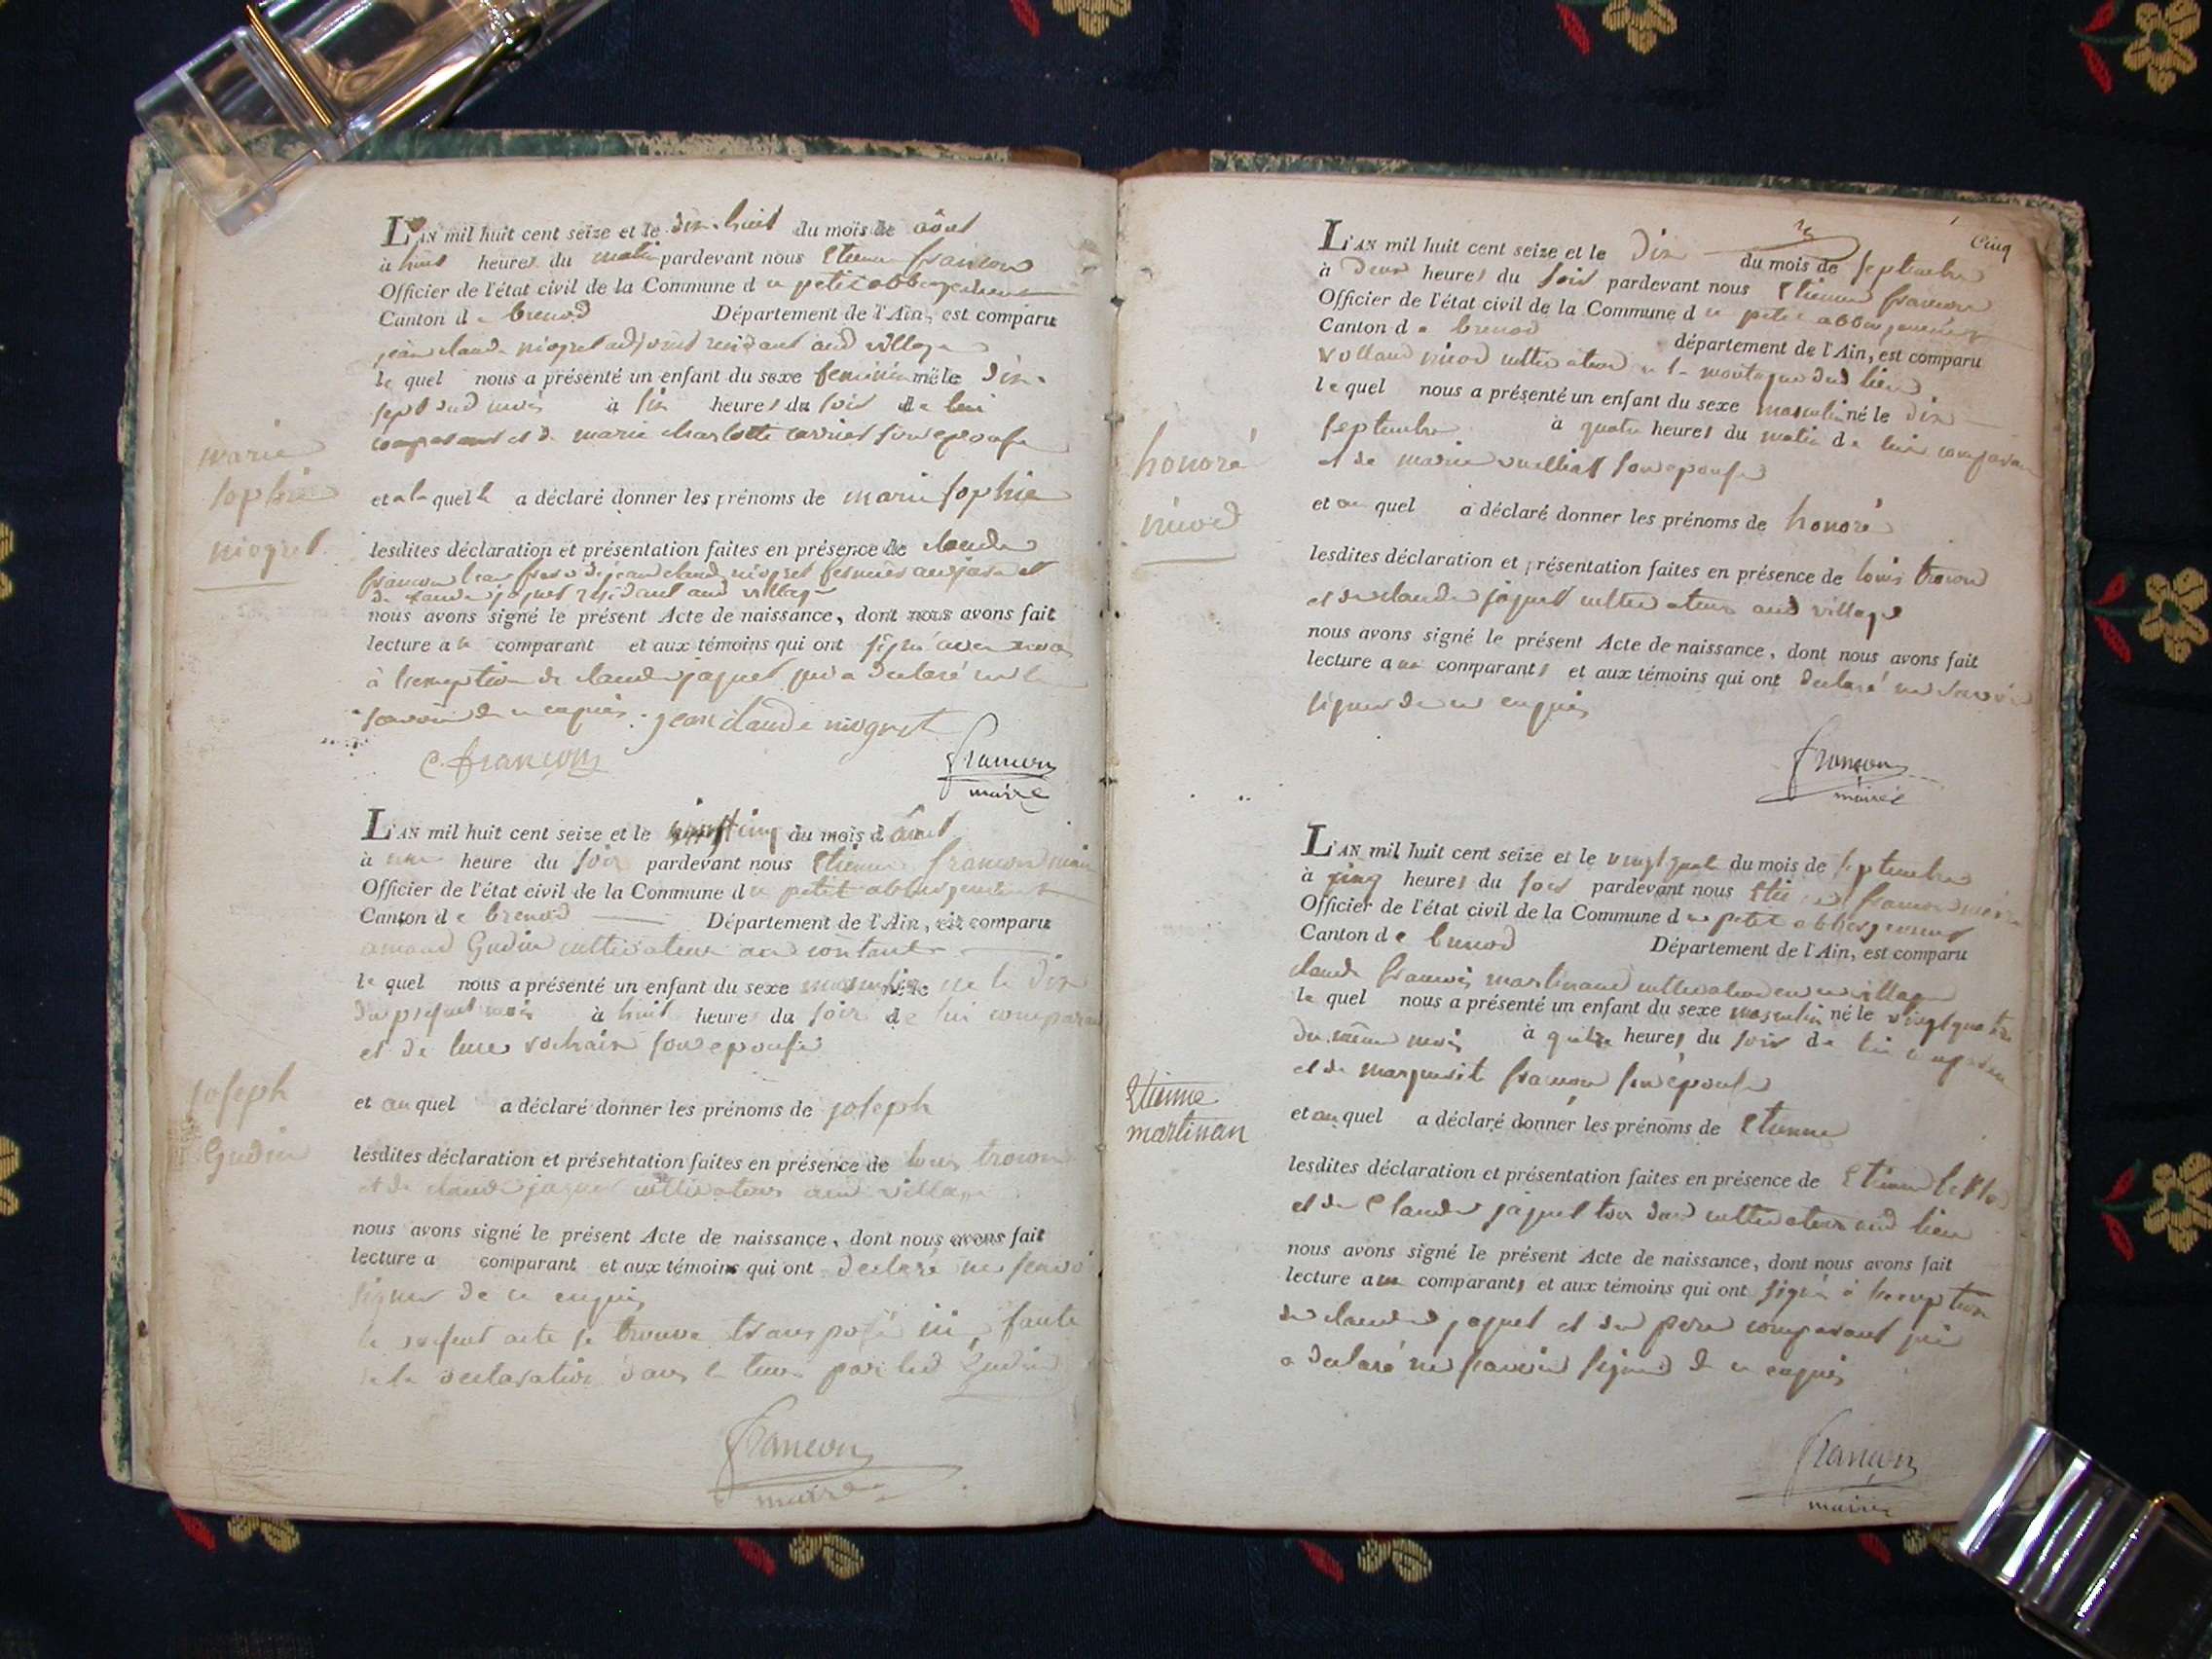 L'AN mil huit cent seize et le dix huit du mois de aôut
à huit heures du matin pardevant nous Etienne françon
Officier de l'état civil de la Commune du petit abbergement
Canton de brenod Département de l'Ain, est comparu
jean claude niogret adjoint residant aud village
le quel nous a présenté un enfant du sexe feminin née le dix
sept dud mois à six heures du soir de lui
comparant et de marie charlotte carrier son epouse
marie
sophie
niogret
et a la quelle a déclaré donner les prénoms de marie sophie
lesdites déclaration et présentation faites en présence de claude
françon de jean claude niogret fermier et
de claude jaquet residant aud village
nous avons signé le présent Acte de naissance, dont nous avons fait
lecture au comparant et aux témoins qui ont signé avec nous
à l'exeption de claude jaquet qui a declaré ne le
savoir de ce enquis. jean claude niogret
C. françon françon
maire
L'AN mil huit cent seize et le vingt cinq du mois d'aôut
à une heure du soir pardevant nous Etienne françon maire
Officier de l'état civil de la Commune du petit abbergement
Canton de brenod Département de l'Ain, est comparu
amand Gudin cultivateur au
le quel nous a présenté un enfant du sexe masculin né le dix
du présent mois à huit heures du soir de lui comparant
et de luce son epouse
joseph
Gudin
et au quel a déclaré donner les prénoms de joseph
lesdites déclaration et présentation faites en présence de louis
et de claude jaquet cultivateurs aud village
nous avons signé le présent Acte de naissance, dont nous avons fait
lecture a comparant et aux témoins qui ont declaré ne savoir
signer de ce enquis
le présent acte se trouve transposé ici, faute
de la declaration dans le tems par led Gudin
françon
maire
Cinq
L'AN mil huit cent seize et le Dix du mois de septembre
à Deux heures du soir pardevant nous Etienne françon
Officier de l'état civil de la Commune du petit abbergement
Canton de brenod département de l'Ain, est comparu
nicod cultivateur a la montagne dud lieu
le quel nous a présenté un enfant du sexe masculin né le dix
septembre à quatre heures du matin de lui comparant
et de marie son epouse
honoré
nicod
et au quel a déclaré donner les prénoms de honoré
lesdites déclaration et présentation faites en présence de louis
et de claude jaquet cultivateurs aud village
nous avons signé le présent Acte de naissance, dont nous avons fait
lecture aux comparants et aux témoins qui ont declaré ne savoir
signer de ce enquis
françon
maire
L'AN mil huit cent seize et le vingt quatre du mois de septembre
à cinq heures du soir pardevant nous Etienne françon maire
Officier de l'état civil de la Commune du petit abbergement
Canton de brenod Département de l'Ain, est comparu
claude françois martinand cultivateur en ce village
le quel nous a présenté un enfant du sexe masculin né le vingt quatre
du même mois à quatre heures du soir de lui comparant
et de marguerite françon son epouse
Etienne
martinan
et au quel a déclaré donner les prénoms de Etienne
lesdites déclaration et présentation faites en présence de Etienne
et de Claude jaquet tous deux cultivateurs aud lieu
nous avons signé le présent Acte de naissance, dont nous avons fait
lecture aux comparants et aux témoins qui ont signé à l'exeption
de claude jaquet et du pere comparant qui
a declaré ne savoir signer de ce enquis
françon
maire